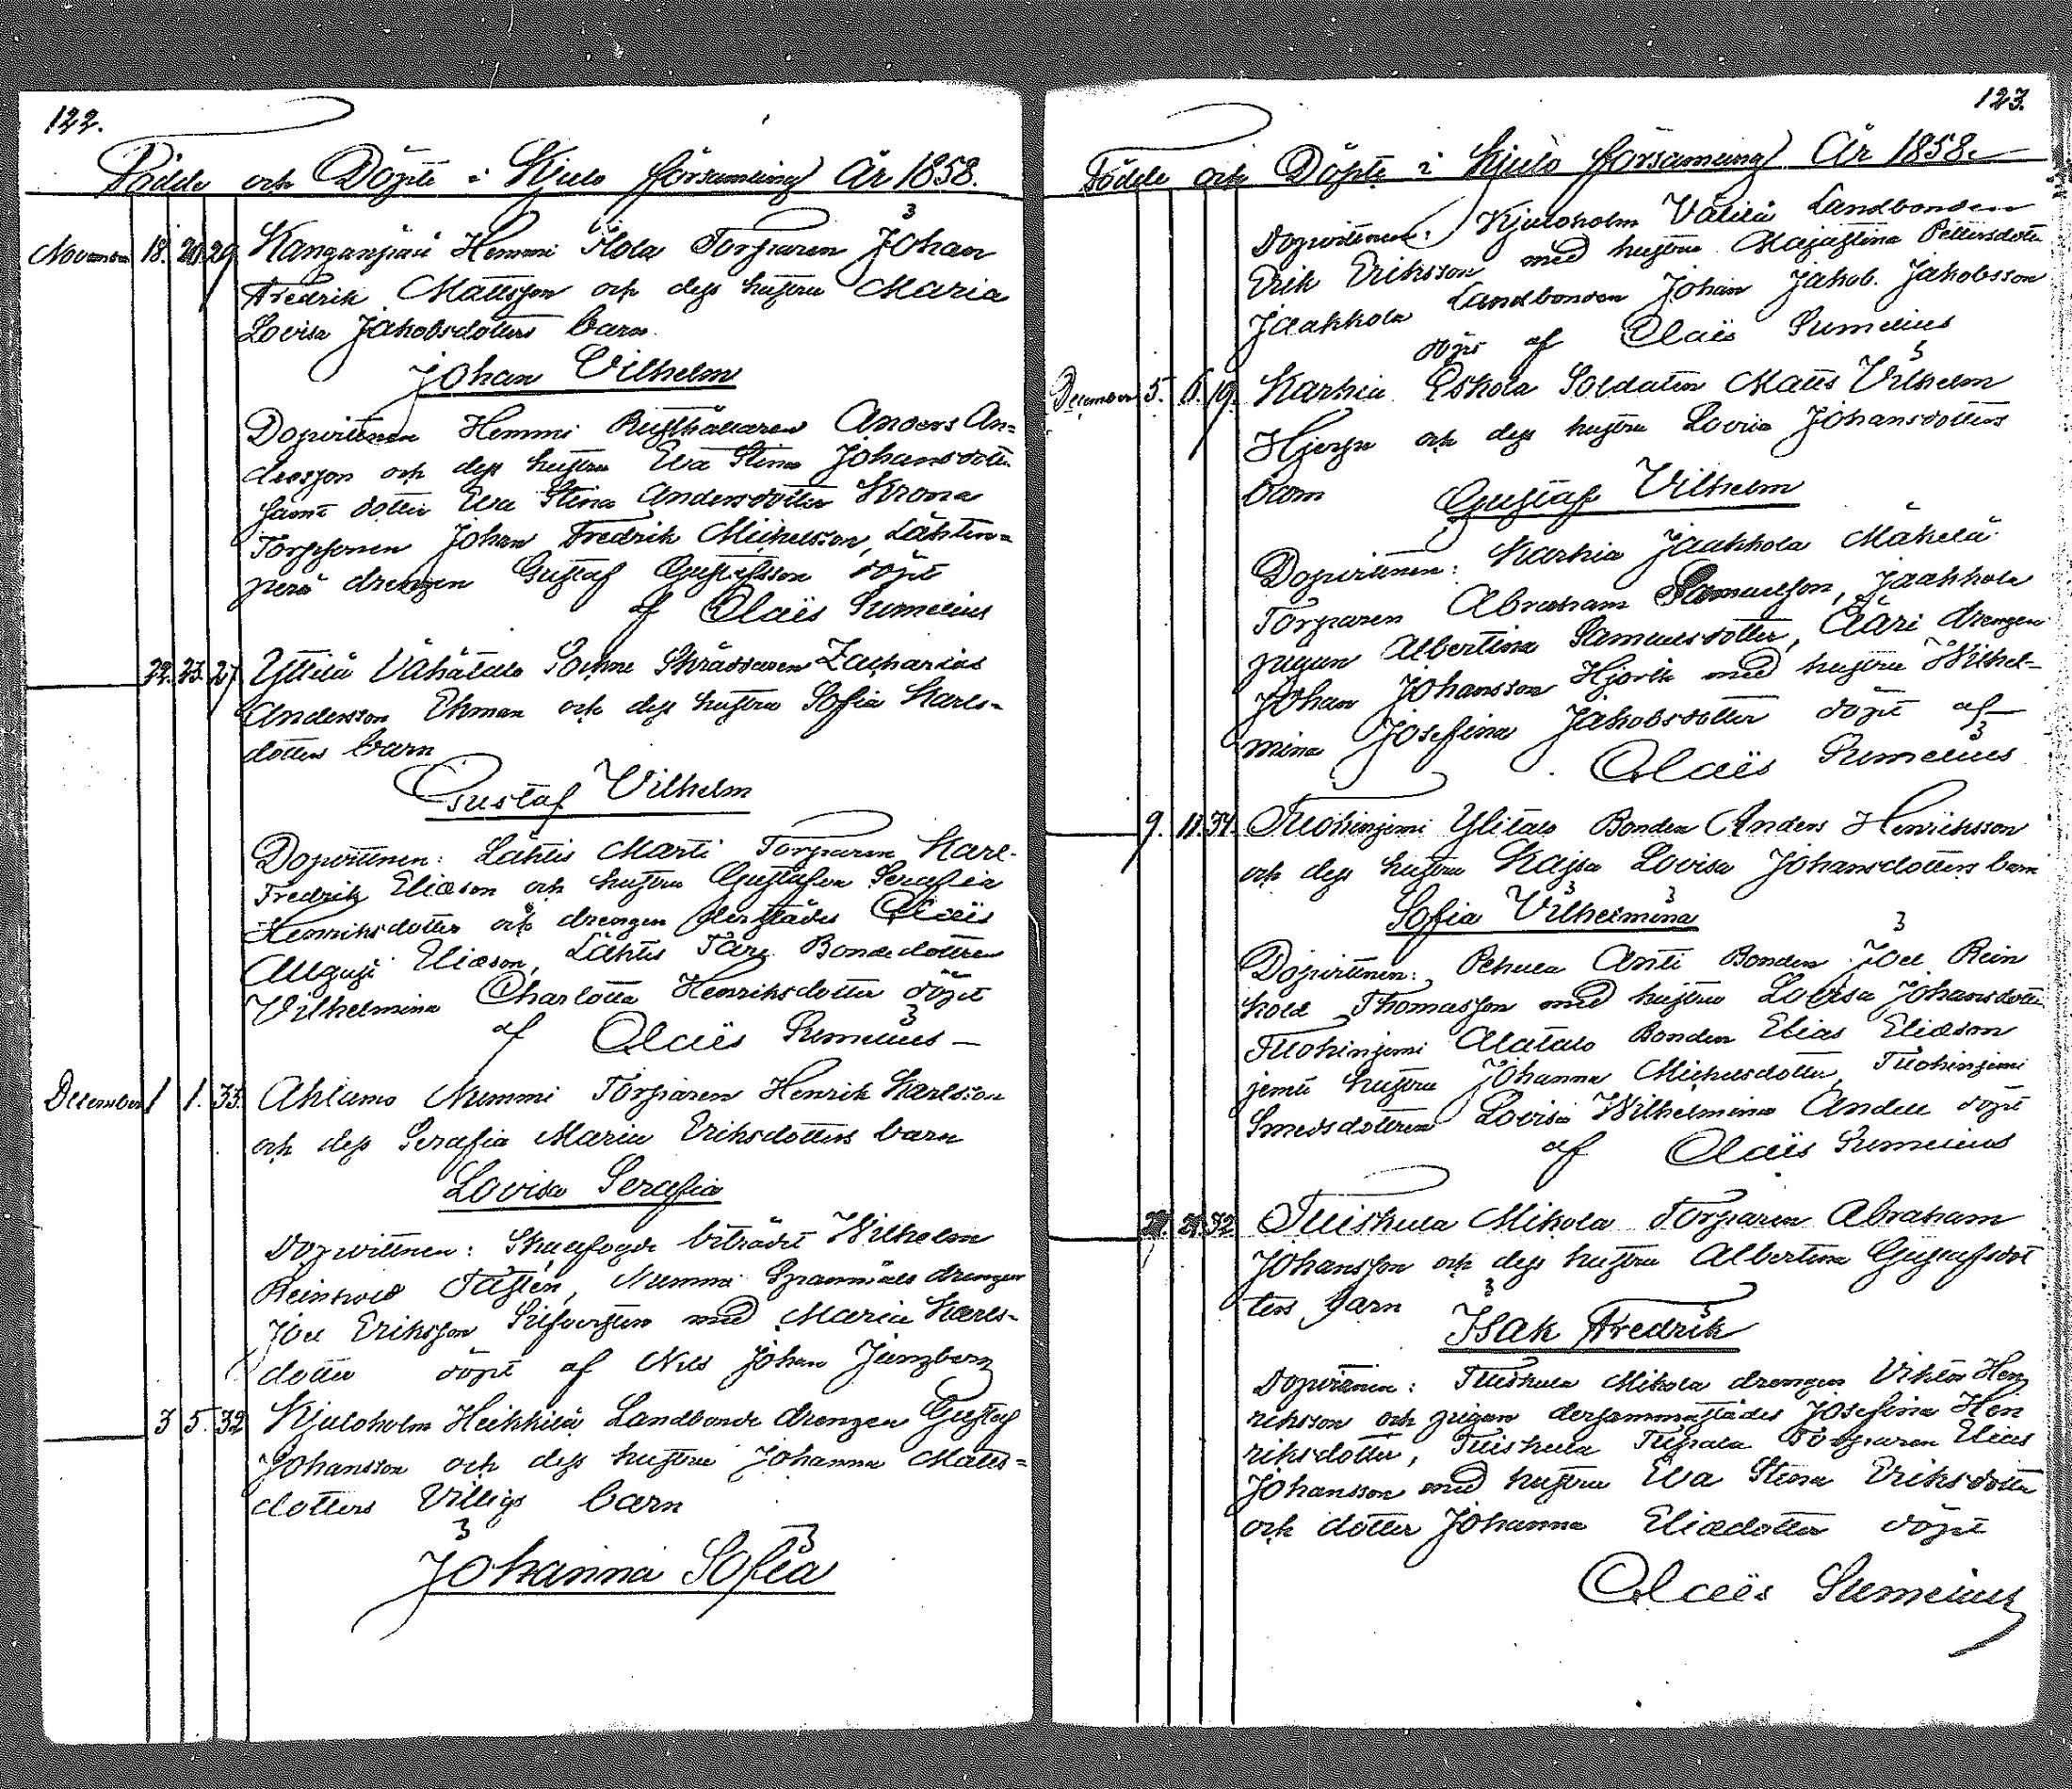 122.
Födde och Döpte i Kjulo församling År 1858.
November 18. 20. 29. Kanganpää Hemmi Mola Torparen Johan
Fredrik Mattsson och dess hustru Maria
Lovisa Jakobsdotters barn
Johan Vilhelm
Dopvittnen Hemmi Rusthållaren Anders An=
dersson och dess hustru Eva Stina Johansdotter
samt dotter Eva Stina Andersdotter Krona
Torpsonen Johan Fredrik Michelsson, Lähten=
perä drengen Gustaf Gustafsson döpt
af Claës Sumelius
22. 23. 27. Yttilä Vähätalo Sockne Skräddaren Zacharias
Andersson Ekman och dess hustru Sofia Karls-
dotters barn
Gustaf Vilhelm
Dopvittnen: Lähtis Marti Torparen Karl
Fredrik Eliæson och hustru Gustafva Serafia
Henriksdotter och drengen derstädes Claës
August Eliæson, Lähtis Bondedottren
Vilhelmina Charlotta Henriksdotter döpt
af Claës Sumelius
December 1 1. 33. Ahlamo Nummi Torparen Henrik Karlsson
och dess Serafia Maria Eriksdotters barn
Lovisa Serafia
Dopvittnen: biträdet Wilhelm
Reinhold Nummi drengen
Joel Eriksson med Maria Karls-
dotter döpt af Nils Johan
3 5. 32 Kjuloholm Heikkilä Landbonde drengen Gustaf
Johansson och dess hustru Johanna Matts=
dotters Villigs barn
Johanna Sofia
123.
Födde och Döpte i Kjulo församling År 1858.
Dopvittnen: Kjuloholm Välilä Landbonden
Erik Eriksson med hustru Majastina Pettersdotter
Jaakkola Landbonden Johan Jakob Jakobsson
döpt af Claës Sumelius
December 5. 6. 19. Karhia Eskola Soldaten Matts Vilhelm
och dess hustru Lovisa Johansdotters
barn Gustaf Vilhelm
Dopvittnen: Karhia Jaakkola Mäkelä
Torparen Abraham Samuelson, Jaakkola
pigan Albertina Samuelsdotter, Ääri drengen
Johan Johansson Hjorth med hustru Wilhel-
mina Josefina Jakobsdotter döpt af
Claës Sumelius
9. 11. 34. Tuohiniemi Ylitalo Bonden Anders Henriksson
och dess hustru Kajsa Lovisa Johansdotters barn
Sofia Vilhelmina
Dopvittnen: Pehula Anti Bonden Joel Rein
hold Thomasson med hustru Lovisa Johansdotter
Tuohiniemi Alatalo Bonden Elias Eliæson
jemte hustru Johanna Michelsdotter, Tuohiniemi
Smedsdottren Lovisa Wilhelmina döpt
af Claës Sumelius
32 Tuiskula Mikola Torparen Abraham
Johansson och dess hustru Albertina Gustafsdot
ters barn Isak Fredrik
Dopvittnen: Tuiskula Mikola drengen Viktor Hen
riksson och pigan dersammastädes Josefina Hen
riksdotter, Tuiskula Torparen Elias
Johansson med hustru Eva Stina Eriksdotter
och dotter Johanna Eliædotter döpt
Claës Sumelius